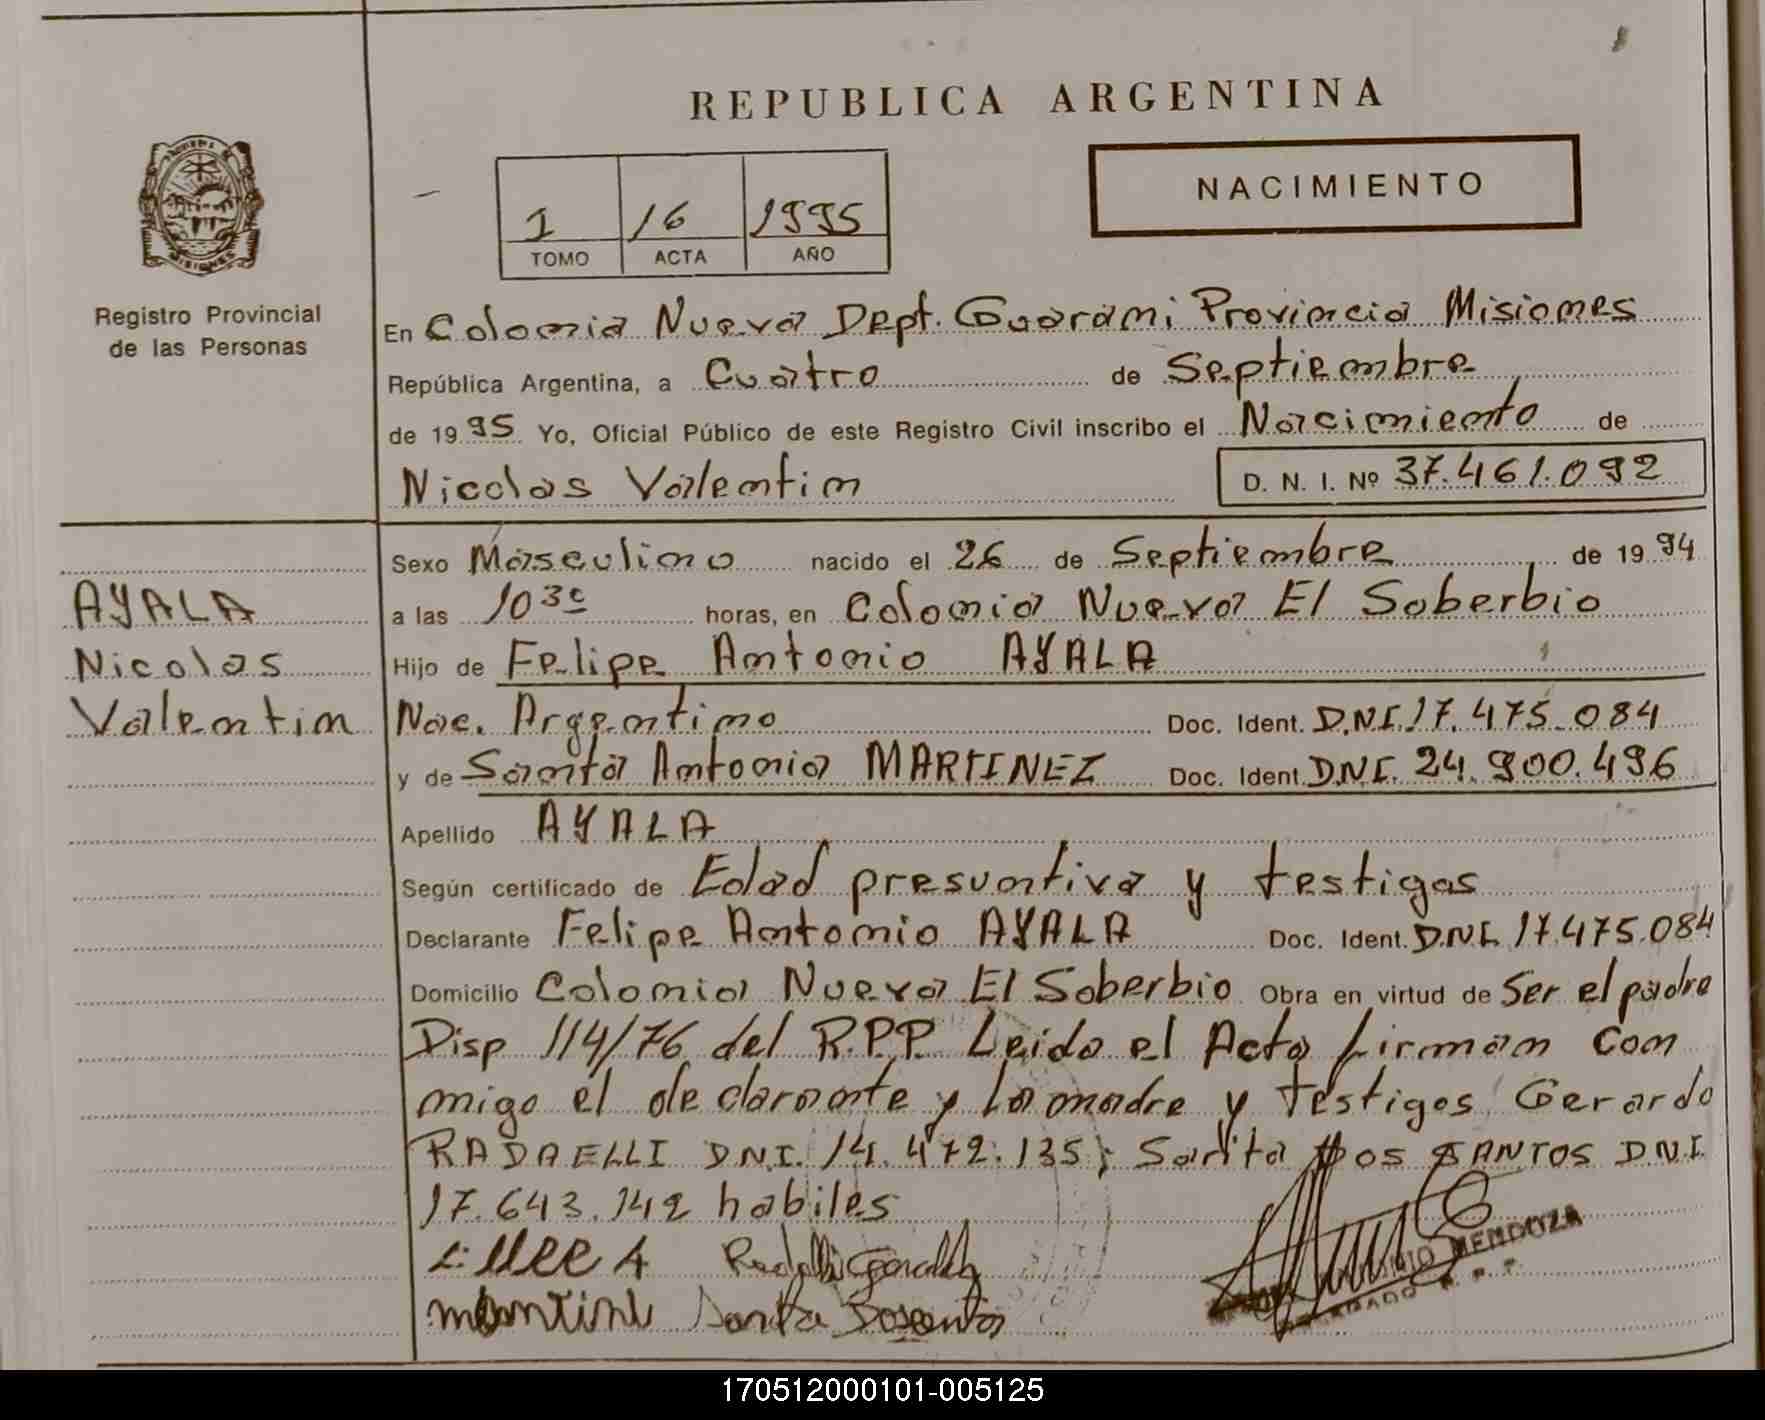 REPUBLICA ARGENTINA
NACIMIENTO
1 16 1995
TOMO ACTA AÑO
Registro Provincial
de las Personas
En Colonia Nueva Dept. Guarani Provincia Misiones
República Argentina, a Cuatro de Septiembre
de 1995 Yo, Oficial Público de este Registro Civil inscribo el Nacimiento de
Nicolas Valentin D. N. I. Nº 37.461.092
AYALA
Nicolas
Valentin
Sexo Masculino nacido el 26 de Septiembre de 1994
a las 10 30 horas, en Colonia Nueva El Soberbio
Hijo de Felipe Antonio AYALA
Nac. Argentino Doc. Ident. D.N.I. 17.475.084
y de Santa Antonia MARTINEZ Doc. Ident. D.N.I. 24.900.496
Apellido AYALA
Según certificado de Edad presuntiva y testigos
Declarante Felipe Antonio AYALA Doc. Ident. D.N.I. 17.475.084
Domicilio Colonia Nueva El Soberbio Obra en virtud de Ser el padre
Disp 114/76 del R.P.P. Leida el Acta firman con
migo el declarante y la madre y testigos Gerardo
RADAELLI D.N.I. 14.472.135; Santa DOS SANTOS D.N.I.
17.643.142 habiles
MENDOZA
170512000101-005125